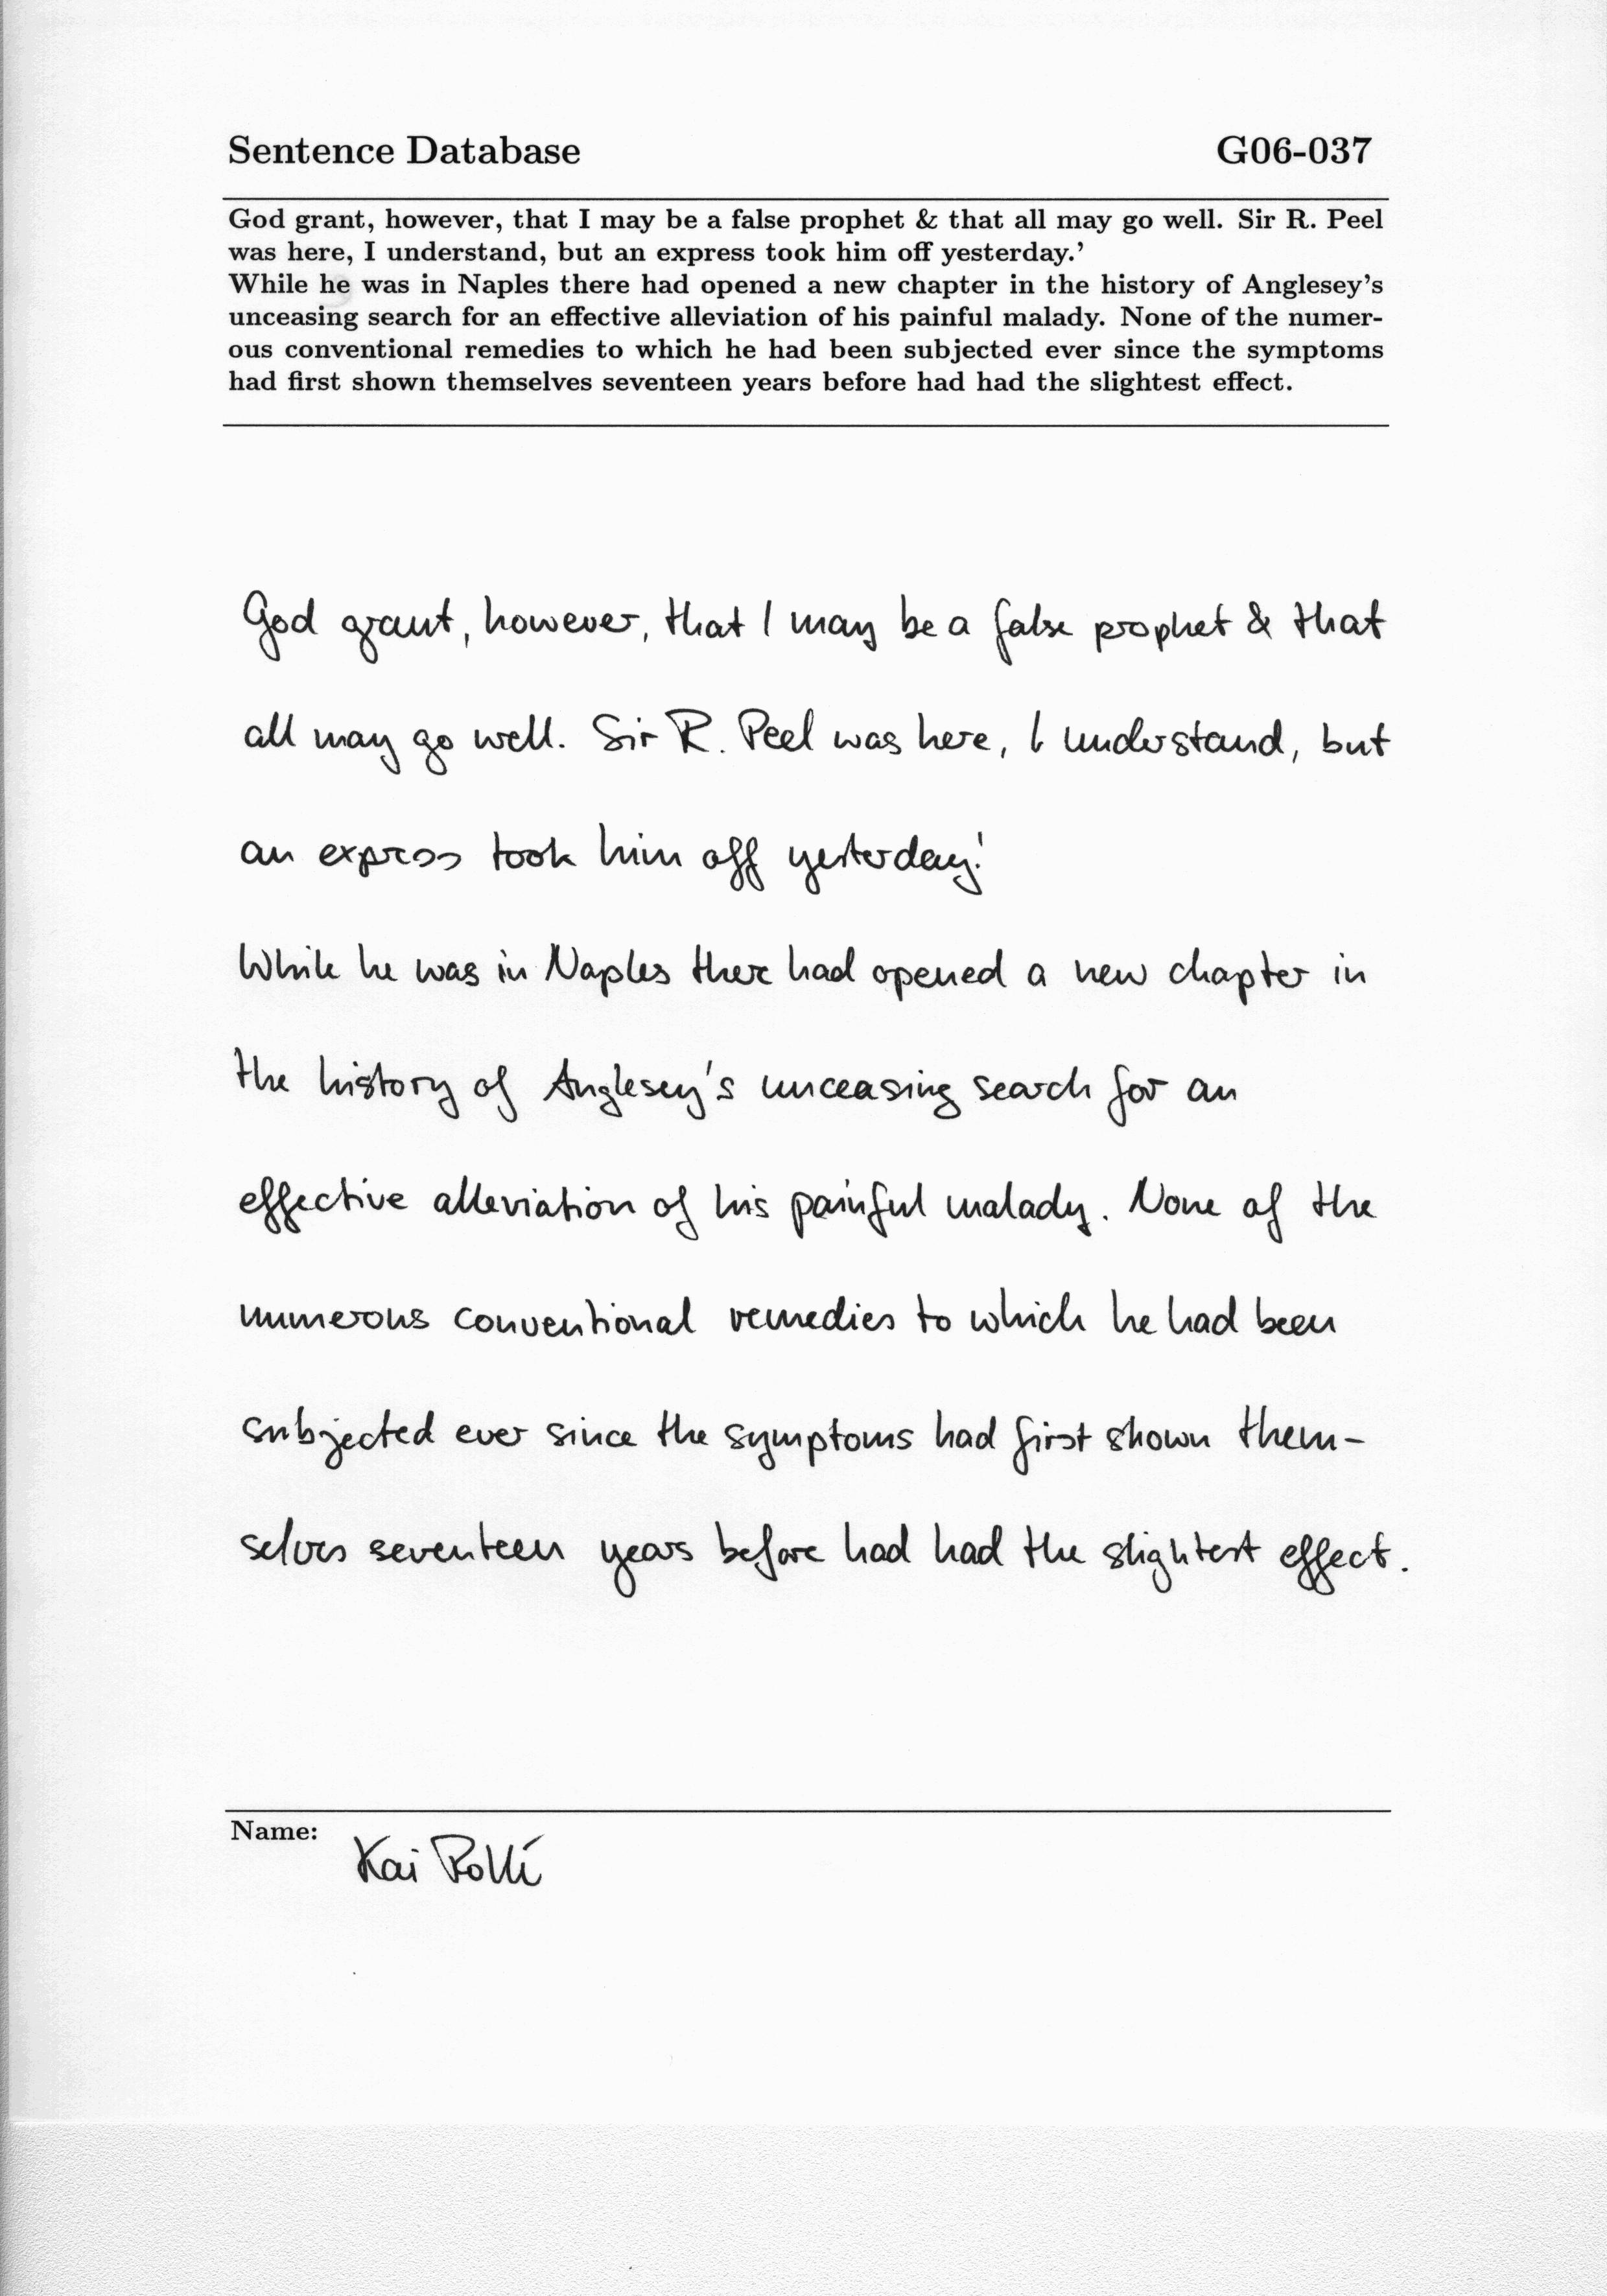 Sentence Database G06-037
God grant, however, that I may be a false prophet & that all may go well. Sir R. Peel
was here, I understand, but an express took him off yesterday.’
While he was in Naples there had opened a new chapter in the history of Anglesey’s
unceasing search for an effective alleviation of his painful malady. None of the numer-
ous conventional remedies to which he had been subjected ever since the symptoms
had first shown themselves seventeen years before had had the slightest effect.
God grant, however, that I may be a false prophet & that
all may go well. Sir R. Peel was here, I understand, but
an express took him off yesterday.'
While he was in Naples there had opened a new chapter in
the history of Anglesey's unceasing search for an
effective alleviation of his painful malady. None of the
numerous conventional remedies to which he had been
subjected ever since the symptoms had first shown them-
selves seventeen years before had had the slightest effect.
Name:
Kai